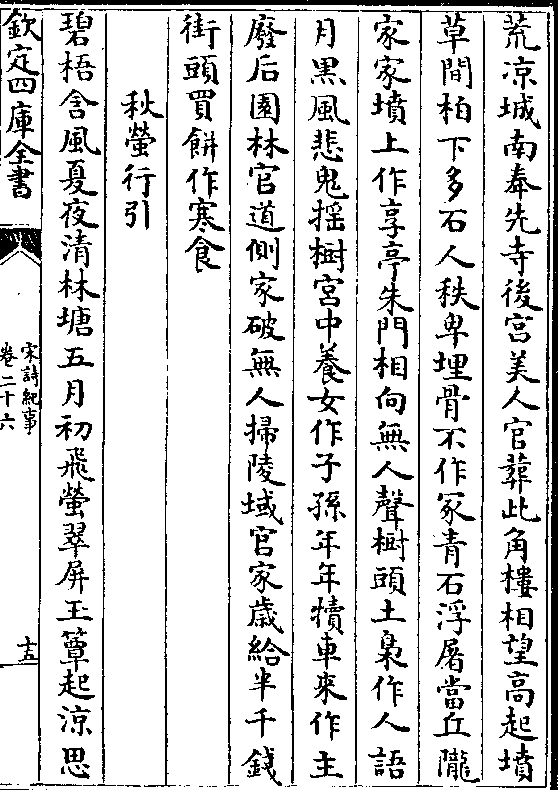 荒凉城南奉先寺後宫美人官葬此角樓相望高起墳
草間柏下多石人秩卑埋骨不作冢青石浮屠當丘隴
家家墳上作享亭朱門相向無人聲樹頭土梟作人語
月黒風悲鬼揺樹宮中養女作子孫年年犢車来作主
廢后園林官道側家破無人掃陵域官家歳給半千錢
街頭買餅作寒食
秋螢行引
碧梧含風夏夜清林塘五月初飛螢翠屏玉簟起涼思
欽定四庫全書
宋詩紀事
卷二十六
十五